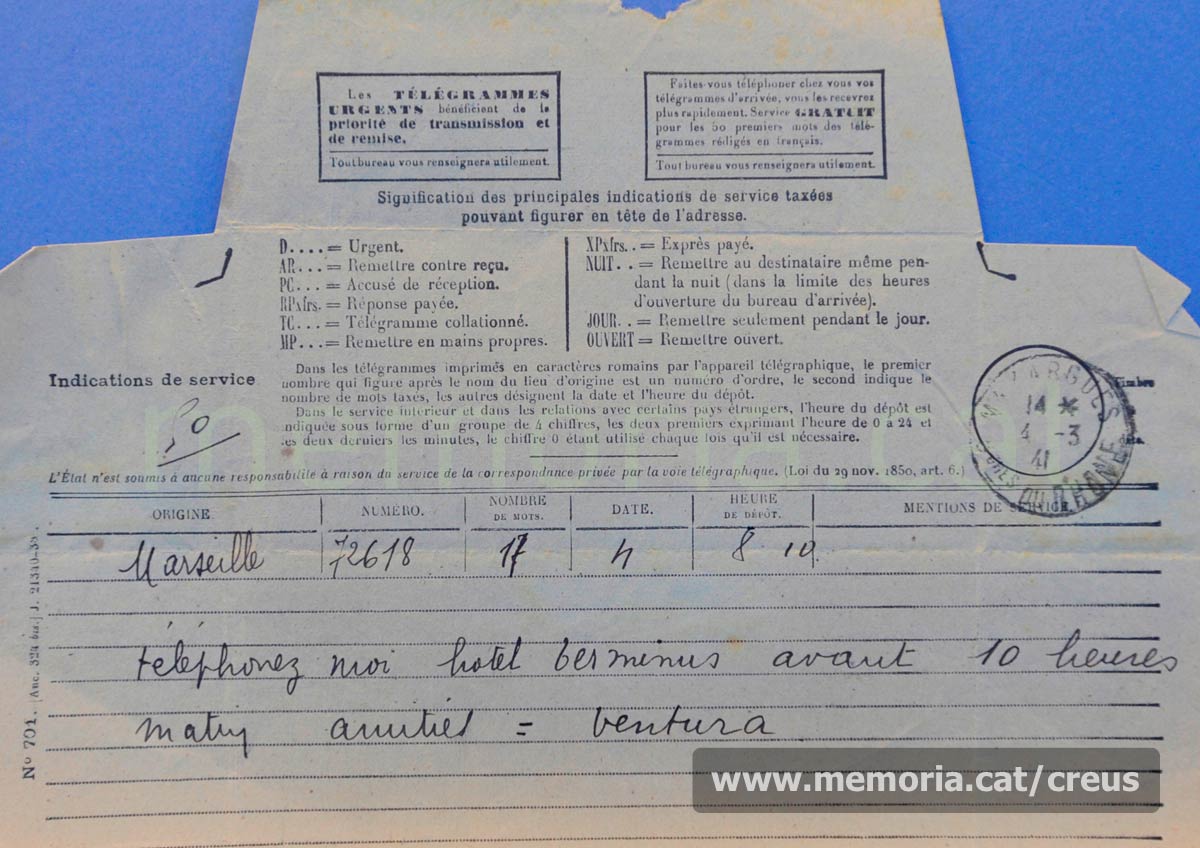 Les TÉLÉGRAMMES
URGENTS bénéficient de la
priorité de transmission et
de remise.
Tout bureau vous renseignera utilement.
Faites-vous téléphoner chez vous vos
télégrammes d'arrivée, vous les recevrez
plus rapidement. Service GRATUIT
pour les 50 premiers mots des télé-
grammes rédigés en français.
Tout bureau vous renseignera utilement.
Signification des principales indications de service taxées
pouvant figurer en tête de l'adresse.
D.... = Urgent.
AR... = Remettre contre reçu.
PC... = Accusé de réception.
RPxfrs. = Réponse payée.
TC... = Télégramme collationné.
MP... = Remettre en mains propres.
XPxfrs.. = Exprès payé.
NUIT.. = Remettre au destinataire même pen-
dant la nuit (dans la limite des heures
d'ouverture du bureau d'arrivée).
JOUR.. = Remettre seulement pendant le jour.
OUVERT = Remettre ouvert.
Indications de service
20
Dans les télégrammes imprimés en caractères romains par l'appareil télégraphique, le premier
nombre qui figure après le nom du lieu d'origine est un numéro d'ordre, le second indique le
nombre de mots taxés, les autres désignent la date et l'heure du dépôt.
Dans le service intérieur et dans les relations avec certains pays étrangers, l'heure du dépôt est
indiquée sous forme d'un groupe de 4 chiffres, les deux premiers exprimant l'heure de 0 à 24 et
les deux derniers les minutes, le chiffre 0 étant utilisé chaque fois qu'il est nécessaire.
Timbre
MAZARGUES
14 *
4 -3
41
DU RHONE
L'État n'est soumis à aucune responsabilité à raison du service de la correspondance privée par la voie télégraphique. (Loi du 29 nov. 1850, art. 6.)
ORIGINE. NUMÉRO. NOMBRE DE MOTS. DATE. HEURE DE DÉPÔT. MENTIONS DE SERVICE.
Marseille 72618 17 4 8 10
téléphonez moi hotel terminus avant 10 heures
matin amitiés = ventura
N° 701. (Anc. 324 bis.) J. 21340-39.
memoria.cat
www.memoria.cat/creus